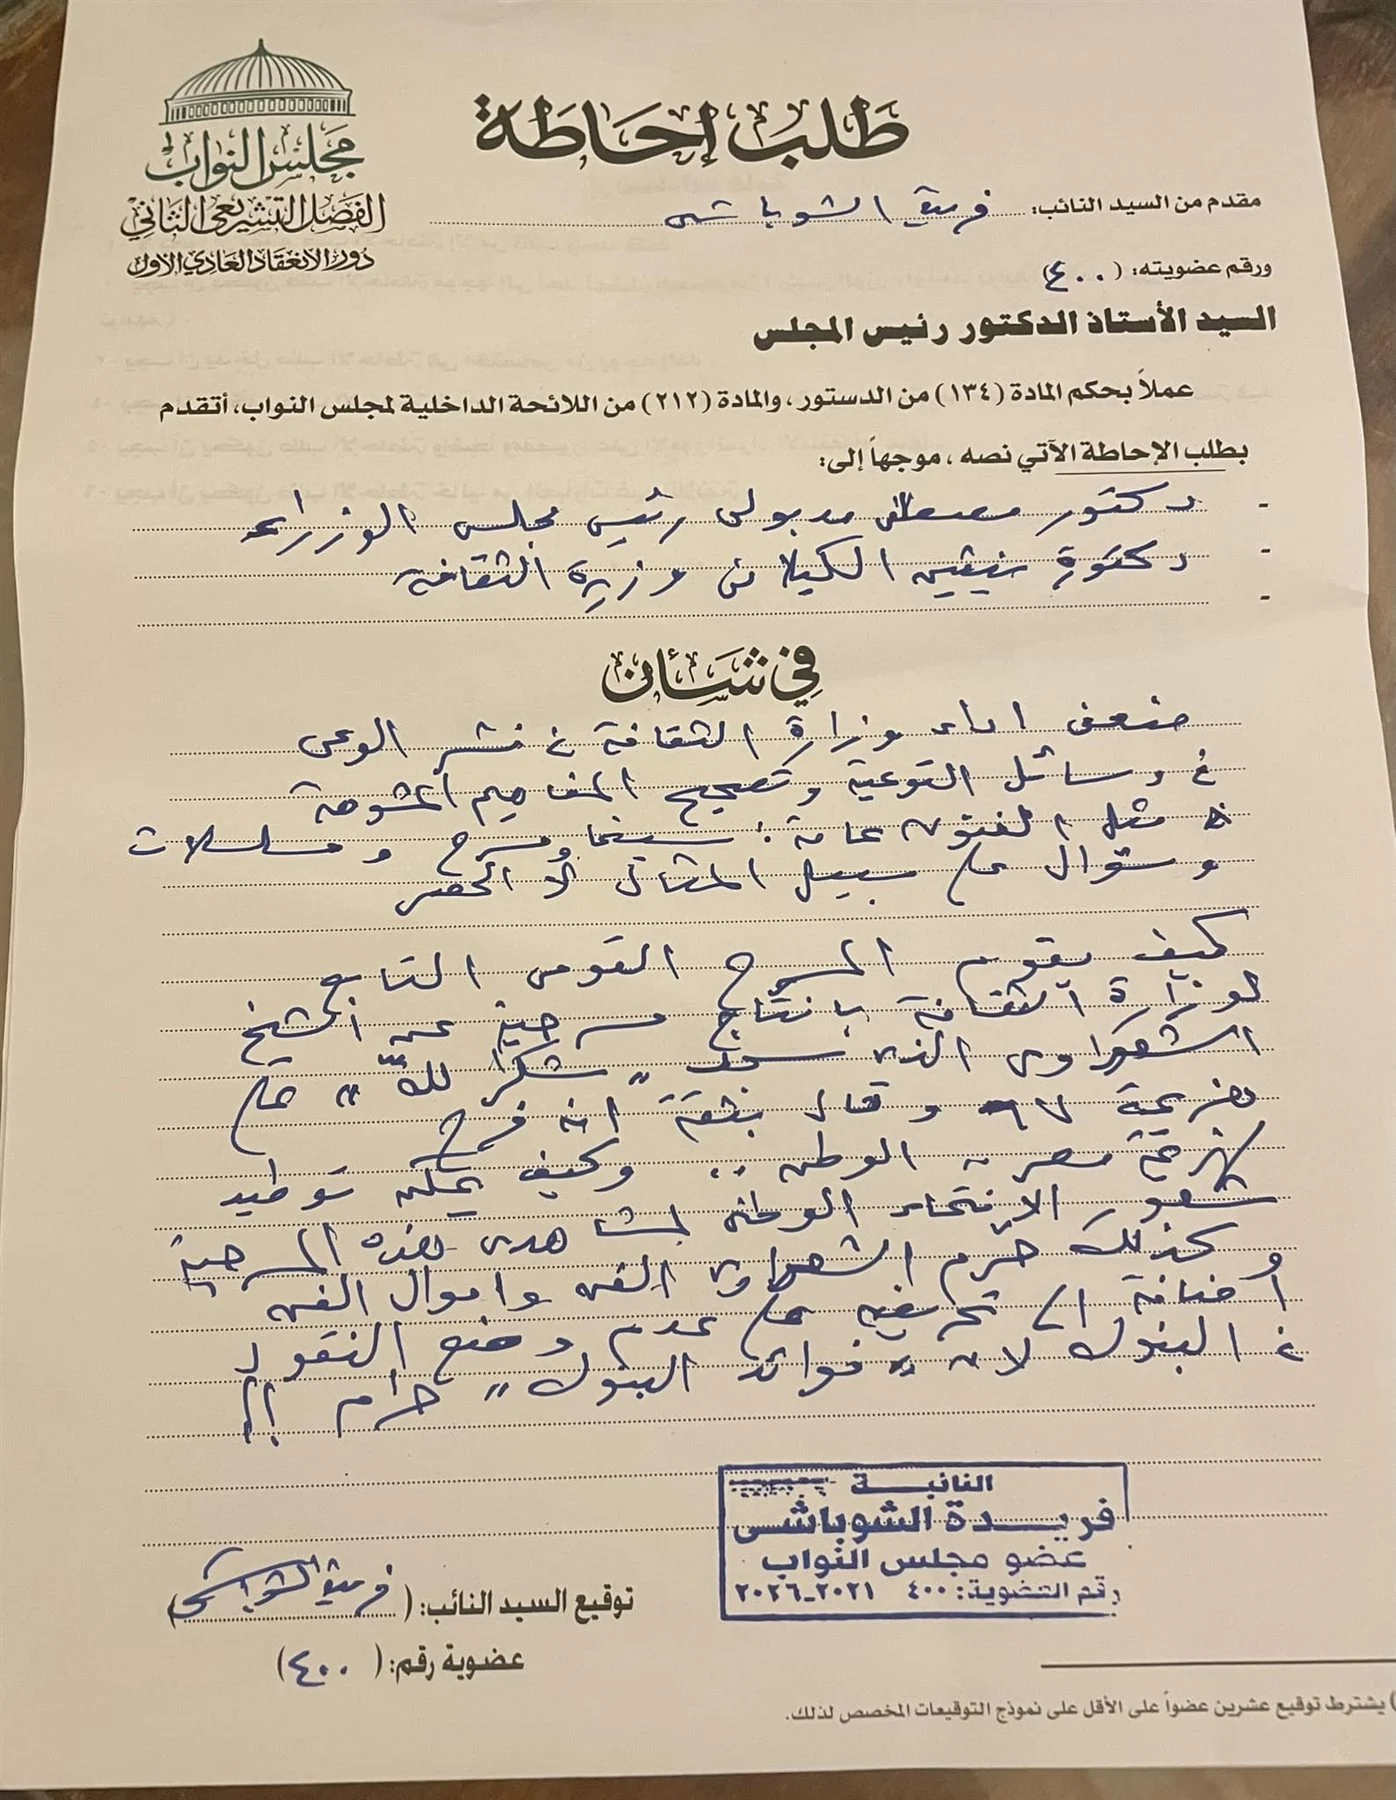 طلب إحاطة
مجلس النواب
الفصل التشريعى الثانى
دور الانعقاد العادى الأول
مقدم من السيد النائب: فريدة الشوباشى
ورقم عضويته: (٤٠٠)
السيد الأستاذ الدكتور رئيس المجلس
عملاً بحكم المادة (١٣٤) من الدستور، والمادة (٢١٢) من اللائحة الداخلية لمجلس النواب، أتقدم
بطلب الإحاطة الآتي نصه، موجهاً إلى:
- دكتور مصطفى مدبولى رئيس مجلس الوزراء
- دكتورة نيفين الكيلانى وزيرة الثقافة
-
في شأن
ضعف اداء وزارة الثقافة فى نشر الوعى
فى وسائل التوعية وتصحيح المفاهيم المشوهة
مثل الفنون عامة: سينما ومسرح ومسلسلات
وسؤال على سبيل المثال لا الحصر
كيف يقوم المسرح القومى التابع
لوزارة الثقافة بانتاج مسرحية عن الشيخ
الشعراوى الذى سجد "شكرا لله" على
هزيمة ٦٧ وقال بثقة انه فرح
لهزيمة مصر الوطن.. وكيف يمكن توطيد
شعور الانتماء الوطنى لمشاهدى هذه المسرحية
وكذلك حرم الشعراوى الفن واموال الفن
اضافة الى تحريضه على عدم وضع النقود
فى البنوك لان "فوائد البنوك" حرام ؟!
النائبة
فريدة الشوباشى
عضو مجلس النواب
رقم العضوية: ٤٠٠ ٢٠٢١-٢٠٢٦
توقيع السيد النائب: (فريدة الشوباشى)
عضوية رقم: (٤٠٠)
) يشترط توقيع عشرين عضواً على الأقل على نموذج التوقيعات المخصص لذلك.